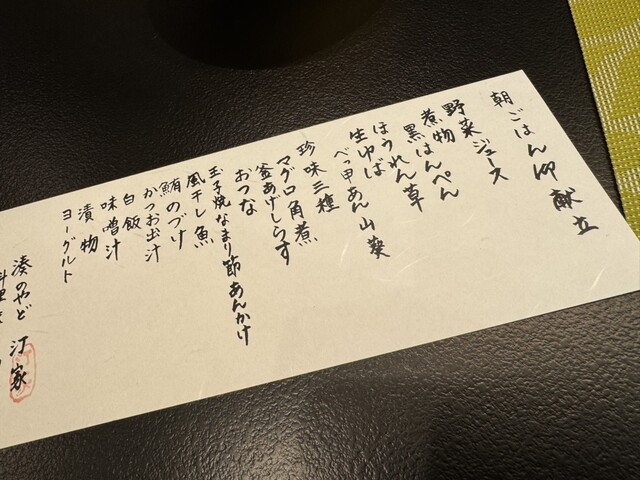 朝ごはん御献立
野菜ジュース
煮物
黒はんぺん
ほうれん草
生ゆば
べっ甲あん山葵
珍味三種
マグロ角煮
釜あげしらす
おつな
玉子焼なまり節あんかけ
風干し魚
鮪のづけ
かつお出汁
白飯
味噌汁
漬物
ヨーグルト
湊のやど 汀家
料理